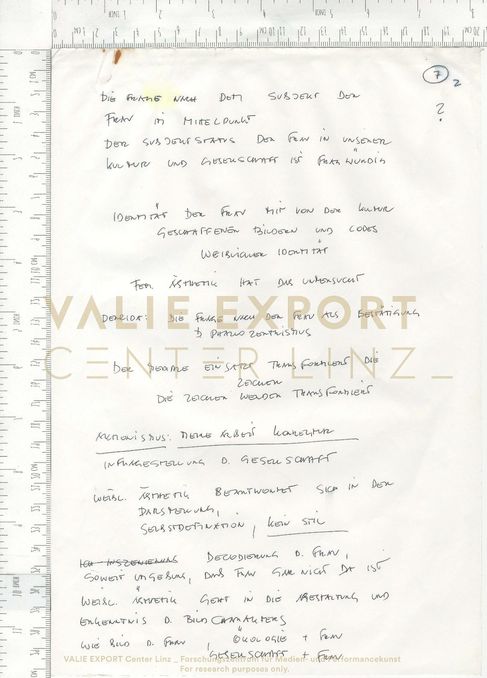 7
2
?
DIE FRAGE NACH DEM SUBJEKT DER
FRAU IM MITTELPUNKT
DER SUBJEKTSTATUS DER FRAU IN UNSERER
KULTUR UND GESELLSCHAFT IST FRAGWÜRDIG
IDENTITÄT DER FRAU MIT VON DER KULTUR
GESCHAFFENEN BILDERN UND CODES
WEIBLICHER IDENTITÄT
FEM. ÄSTHETIK HAT DAS UNTERSUCHT
VALIE EXPORT
DERRIDA: DIE FRAGE NACH DER FRAU ALS BESTÄTIGUNG
D. PHALLOZENTRISMUS
CENTER LINZ_
DER EINSATZ TRANSFORMIERT DIE
ZEICHEN
DIE ZEICHEN WERDEN TRANSFORMIERT
AKTIONISMUS: MEINE ARBEIT
INFRAGESTELLUNG D. GESELLSCHAFT
WEIBL. ÄSTHETIK BEANTWORTET SICH IN DER
DARSTELLUNG,
SELBSTDEFINATION, KEIN STIL
ICH INSZENIERUNG DECODIERUNG D. FRAU,
SOWEIT UMGEBUNG, DASS FRAU GAR NICHT DA IST
WEIBL. ÄSTHETIK GEHT IN DIE GESTALTUNG UND
ERKENNTNIS D. BILDCHARAKTERS
WIE BILD D. FRAU, ÖKOLOGIE + FRAU
GESELLSCHAFT + FRAU
VALIE EXPORT Center Linz _ Forschungszentrum für Medien- und Performancekunst
For research purposes only.